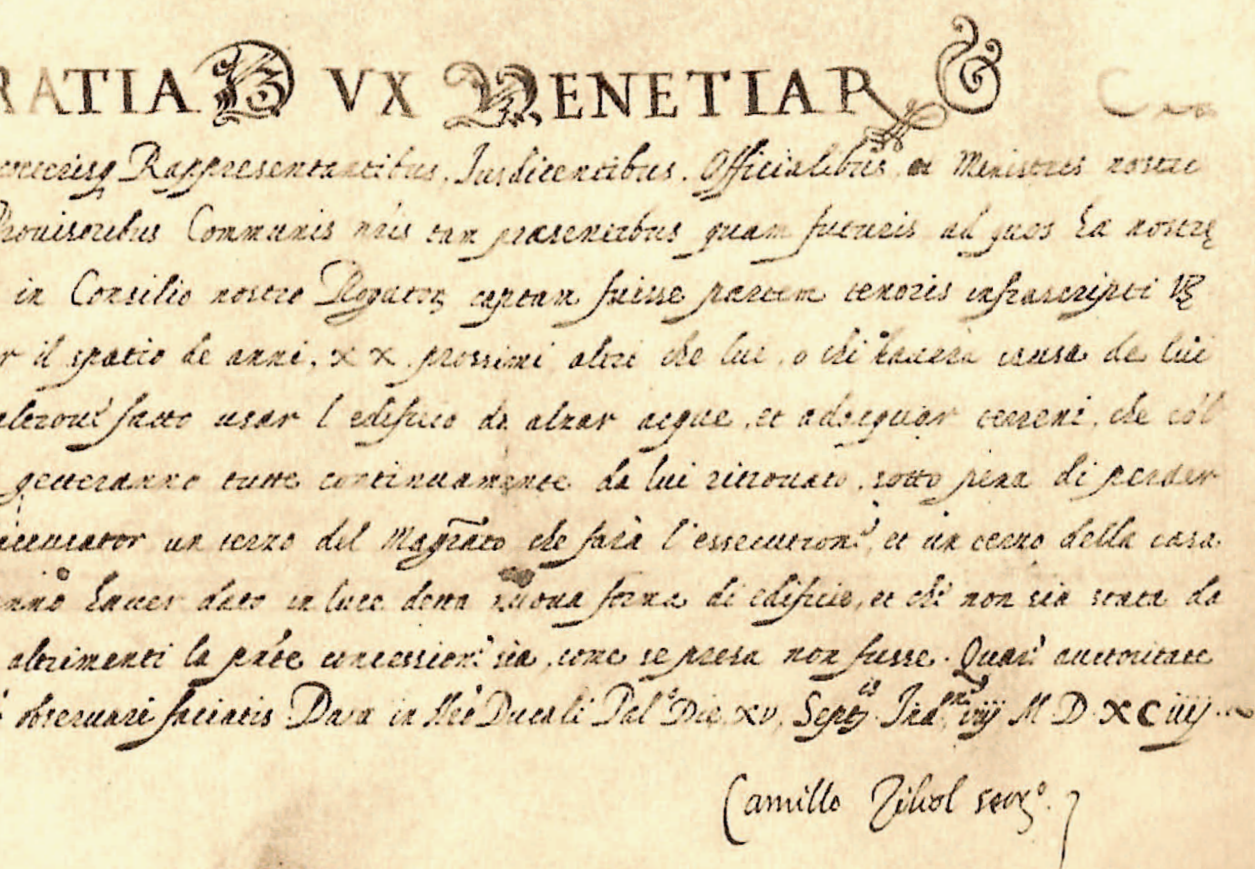 RATIA DVX VENETIAR &
Rappresentantibus. Iusdicentibus. Officialibus et Ministris nostri
Provisoribus Communis nris tam praesentibus quam futuris ad quos ha nostrę
in Consilio nostro Rogator captam fuisse partem tenoris infrascripti Vz
r il spatio de anni. XX. prossimi altri che lui, o chi haverà causa da lui
facto usar l edificio da alzar acque, et adacquar terreni, che col
getteranno tutte continuamente da lui ritrovato, sotto pena di perder
accusator un terzo del Magrato che farà l'essecution, et un terzo della casa
haver dato in luce detta nuova forma di edificio, et che non sia stata da
altrimenti la pnte concession sia, come se presa non fusse. Quare auctoritate
observari faciatis. Data in Nro Ducali Pal° Die. xv. Septis Indne viij M D XC iiij
Camillo secr°.